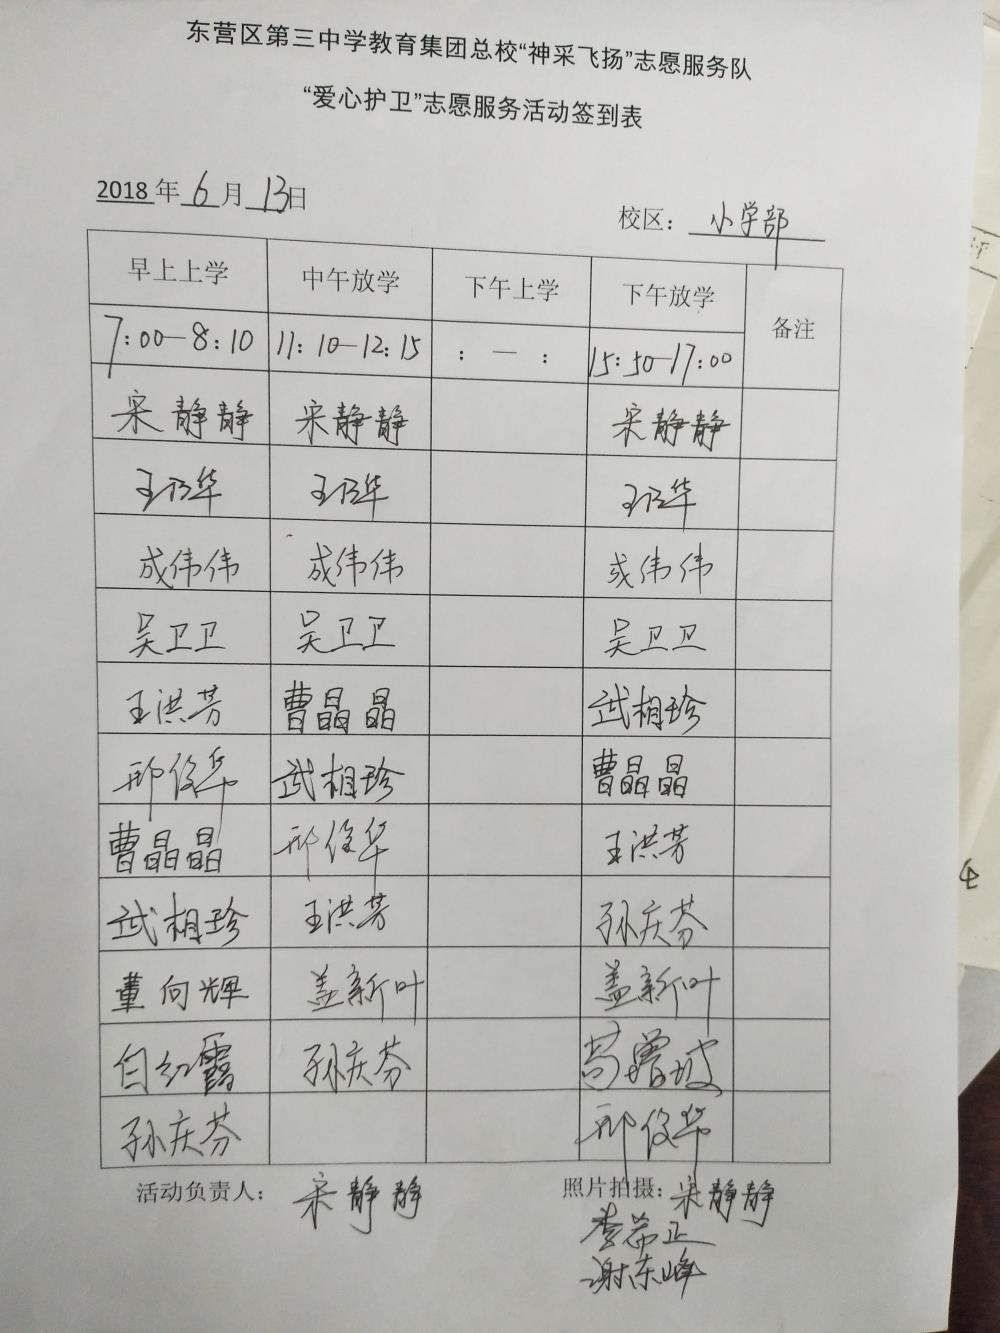 东营区第三中学教育集团总校“神采飞扬”志愿服务队
“爱心护卫”志愿服务活动签到表
2018年6月13日 校区：小学部
早上上学 中午放学 下午上学 下午放学 备注
7:00—8:10 11:10—12:15 : — : 15:50—17:00
宋静静 宋静静 宋静静
王乃华 王乃华 王乃华
成伟伟 成伟伟 成伟伟
吴卫卫 吴卫卫 吴卫卫
王洪芳 曹晶晶 武相珍
邢俊华 武相珍 曹晶晶
曹晶晶 邢俊华 王洪芳
武相珍 王洪芳 孙庆芬
董向辉 盖新叶 盖新叶
白红霞 孙庆芬
孙庆芬 邢俊华
活动负责人：宋静静 照片拍摄：宋静静
李希正
谢东峰